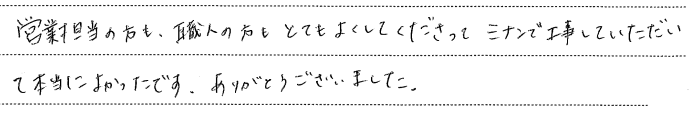 営業担当の方も、職人の方もとてもよくしてくださって ミナンで工事していただい
て本当によかったです。ありがとうございました。